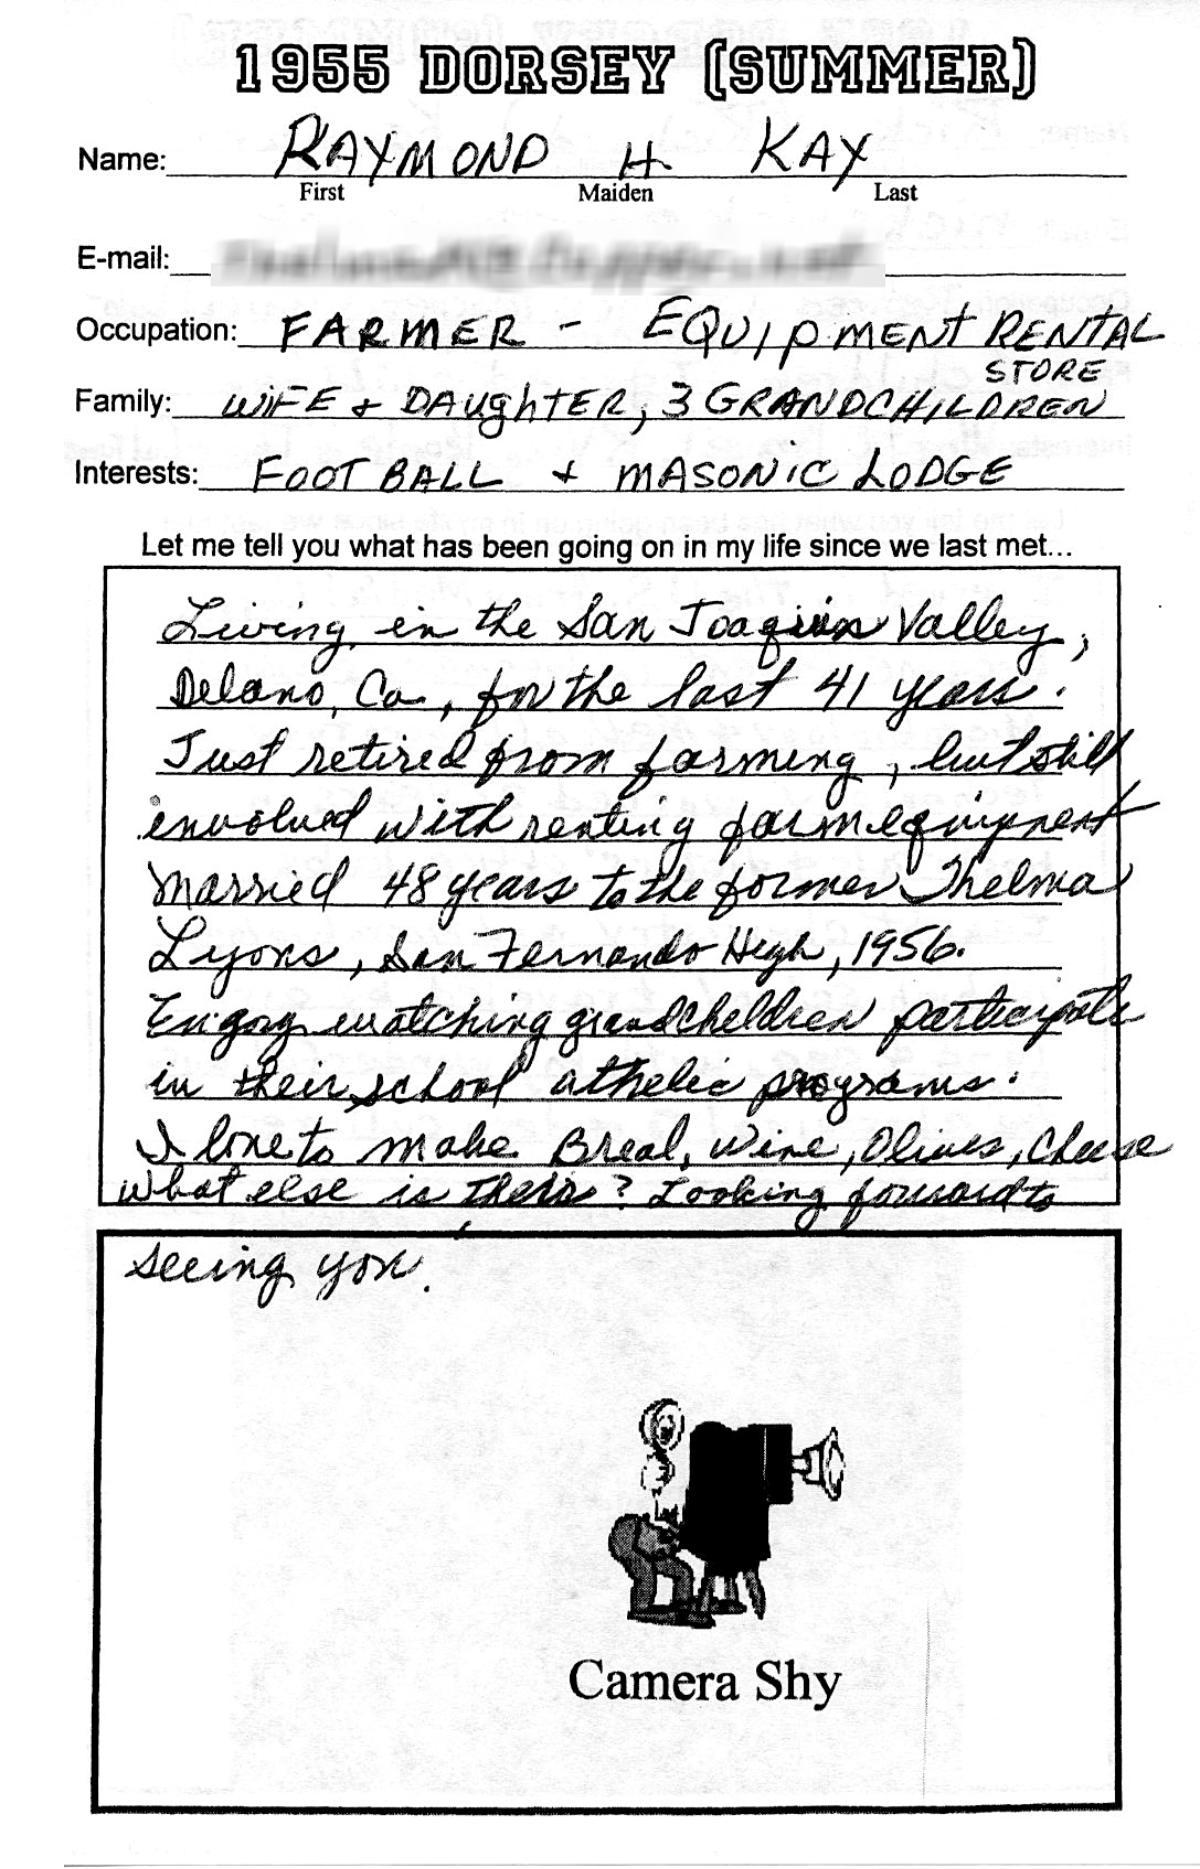 1955 DORSEY (SUMMER)
Name: RAYMOND H. KAY
First Maiden Last
E-mail:
Occupation: FARMER - EQUIPMENT RENTAL
STORE
Family: WIFE & DAUGHTER, 3 GRANDCHILDREN
Interests: FOOTBALL & MASONIC LODGE
Let me tell you what has been going on in my life since we last met...
Living in the San Joaquin Valley,
Delano, Ca., for the last 41 years.
Just retired from farming, but still
envolved with renting farm equipment
Married 48 years to the former Thelma
Lyons, San Fernando High, 1956.
Enjoy watching grandchildren participate
in their school athelic programs.
I love to make Bread, Wine, Olives, Cheese
What else is there? Looking forward to
seeing you.
Camera Shy